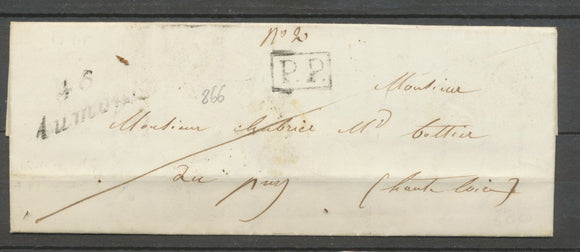 No 2
P.P.
46
Aumon
866
Monsieur
Monsieur Chabrier Md bottier
au puy (haute loire)